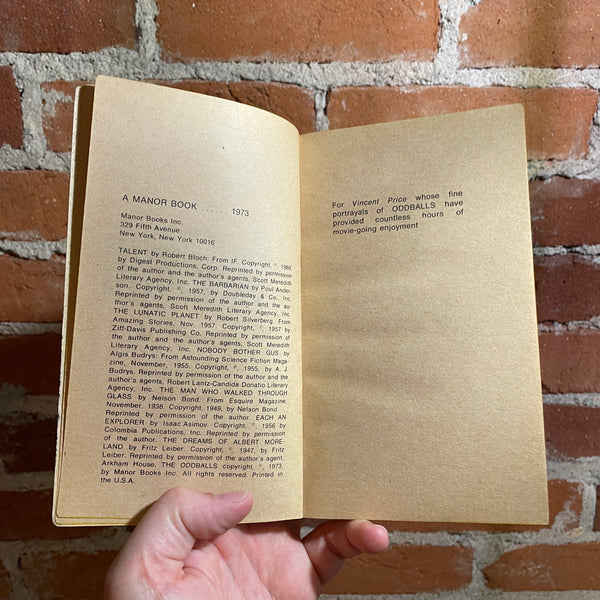 A MANOR BOOK ...... 1973
Manor Books Inc.
329 Fifth Avenue
New York, New York 10016
TALENT by Robert Bloch; From IF. Copyright, ©, 1960
by Digest Productions, Corp. Reprinted by permission
of the author and the author's agents, Scott Meredith
Literary Agency, Inc. THE BARBARIAN by Poul Ander-
son. Copyright, ©, 1957, by Doubleday & Co., Inc.
Reprinted by permission of the author and the au-
thor's agents, Scott Meredith Literary Agency, Inc.
THE LUNATIC PLANET by Robert Silverberg. From
Amazing Stories, Nov. 1957. Copyright, ©, 1957 by
Ziff-Davis Publishing Co. Reprinted by permission of
the author and the author's agents, Scott Meredith
Literary Agency, Inc. NOBODY BOTHER GUS by
Algis Budrys: From Astounding Science Fiction Maga-
zine, November, 1955. Copyright, ©, 1955, by A. J.
Budrys. Reprinted by permission of the author and the
author's agents, Robert Lantz-Candida Donatio Literary
Agency, Inc. THE MAN WHO WALKED THROUGH
GLASS by Nelson Bond: From Esquire Magazine,
November, 1938. Copyright, 1949, by Nelson Bond.
Reprinted by permission of the author. EACH AN
EXPLORER by Isaac Asimov. Copyright, ©, 1956 by
Columbia Publications, Inc. Reprinted by permission
of the author. THE DREAMS OF ALBERT MORE-
LAND by Fritz Leiber. Copyright, ©, 1947, by Fritz
Leiber. Reprinted by permission of the author's agent,
Arkham House. THE ODDBALLS copyright, ©, 1973,
by Manor Books Inc. All rights reserved. Printed in
the U.S.A.
For Vincent Price whose fine
portrayals of ODDBALLS have
provided countless hours of
movie-going enjoyment